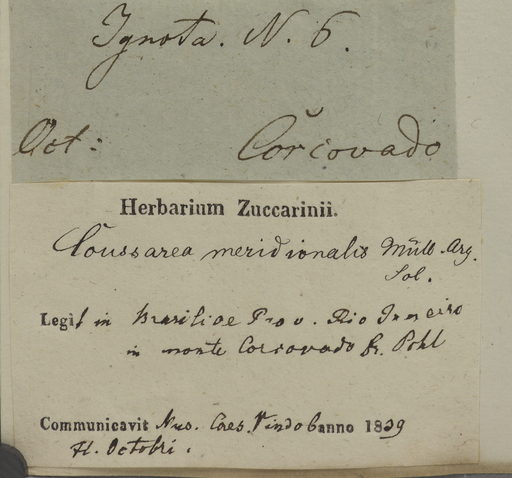 Ignota. N. 6.
Oct: Corcovado
Herbarium Zuccarinii.
Coussarea meridionalis Müll. Arg.
Legit in Brasiliae Prov. Rio Janeiro
in monte Corcovado Pohl
Communicavit Mus. Caes. Vindob anno 1839
Fl. Octobri.